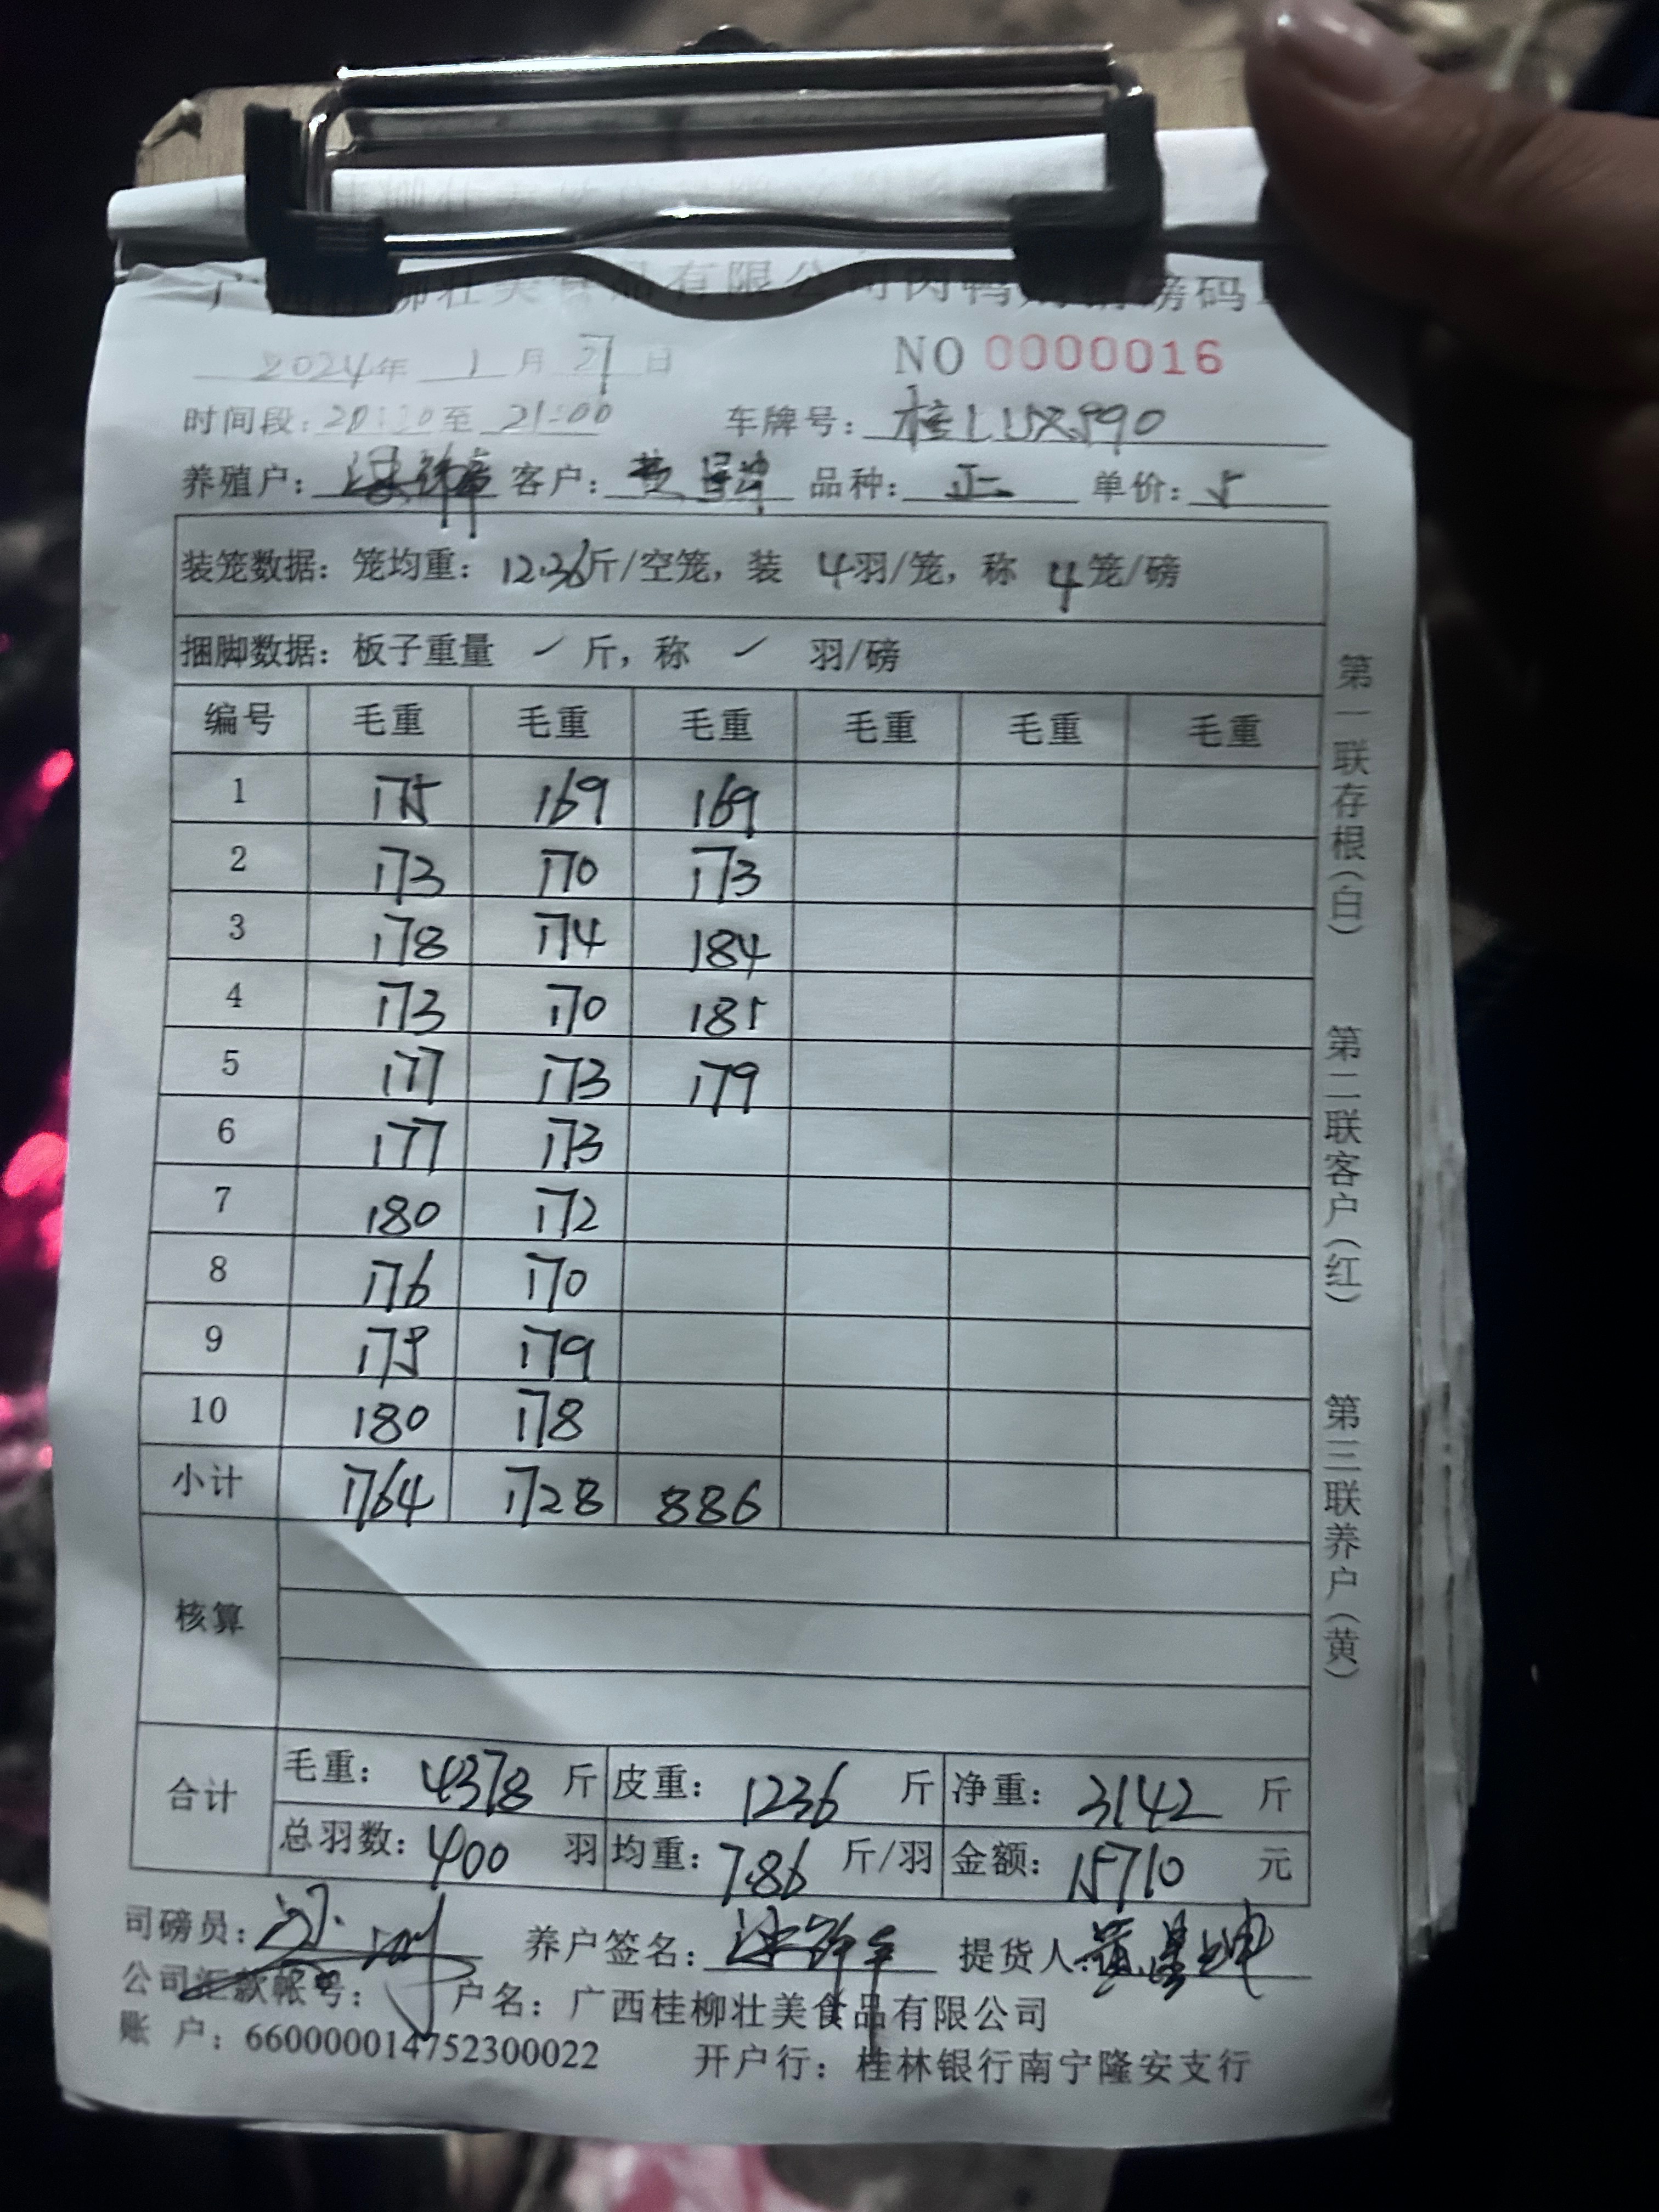 有限公司肉鸭
2024年 1月 27日 NO 0000016
时间段: 至 21:00 车牌号: 桂
养殖户: 客户: 品种: 正 单价: 5
装笼数据: 笼均重: 12.36斤/空笼, 装 4羽/笼, 称 4笼/磅
捆脚数据: 板子重量 斤, 称 羽/磅
编号 毛重 毛重 毛重 毛重 毛重 毛重
1 175 169 169
2 173 170 173
3 178 174 184
4 173 170 181
5 177 173 179
6 177 173
7 180 172
8 176 170
9 175 179
10 180 178
小计 1764 1728 886
核算
合计
毛重: 4378 斤 皮重: 1236 斤 净重: 3142 斤
总羽数: 400 羽 均重: 7.86 斤/羽 金额: 15710 元
司磅员: 养户签名: 提货人:
公司汇款帐号: 户名: 广西桂柳壮美食品有限公司
账 户: 660000014752300022 开户行: 桂林银行南宁隆安支行
第一联存根(白) 第二联客户(红) 第三联养户(黄)